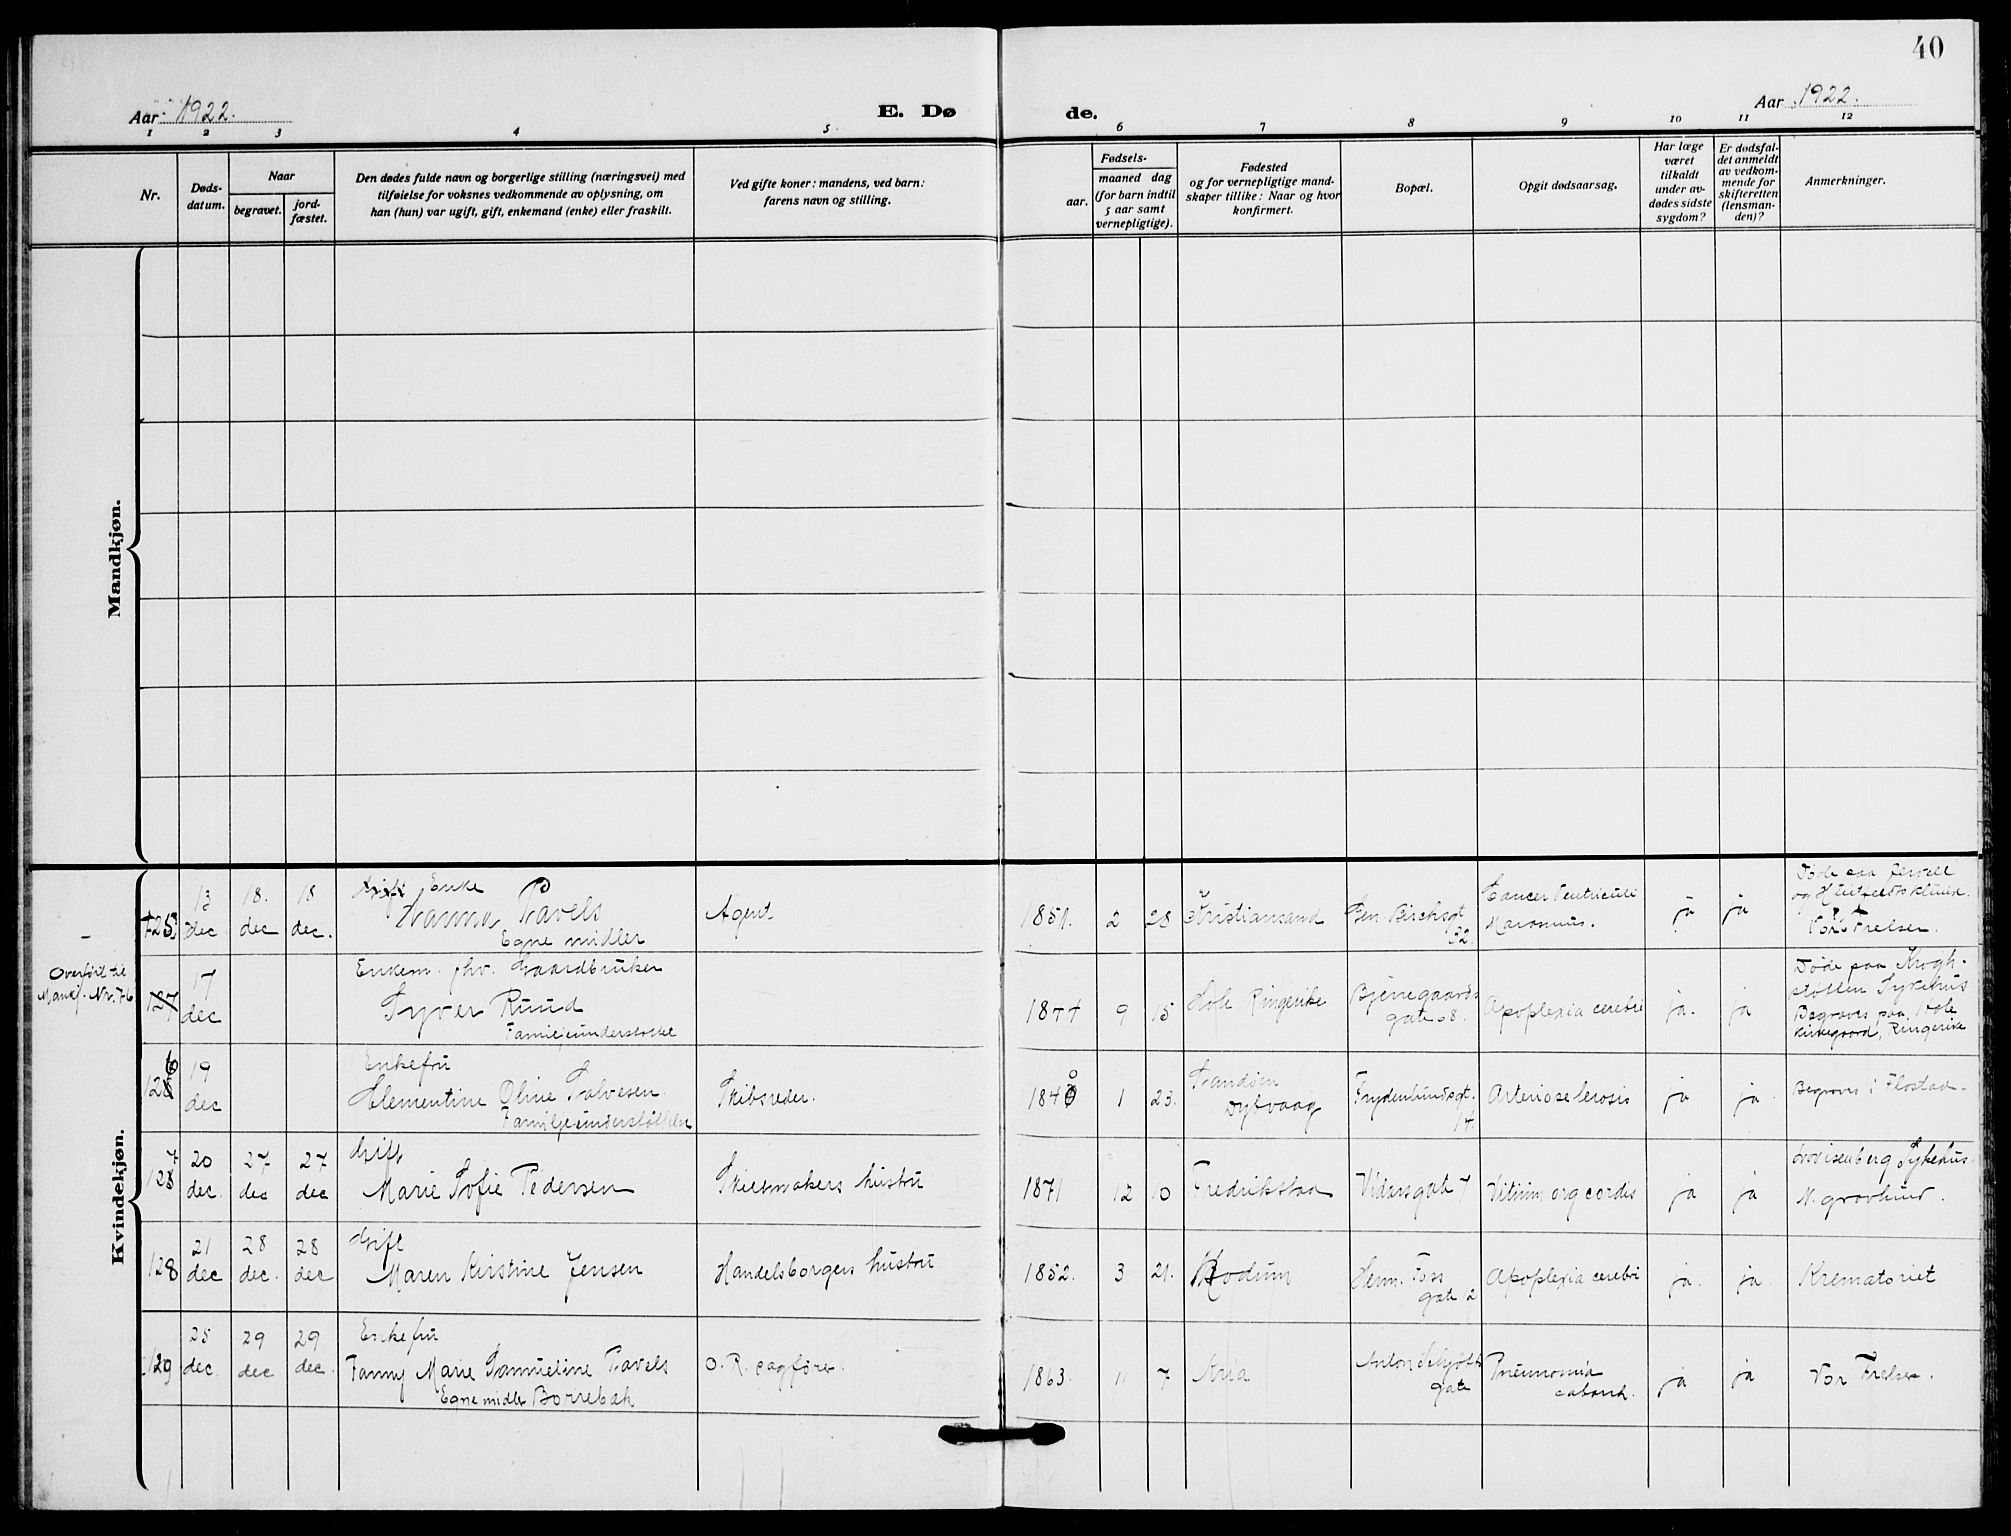 40
Aar 1922.
E. Dø
de.
Aar 1922.
1 2 3 4 5 6 7 8 9 10 11 12
Nr.
Døds-
datum.
Naar
begravet.
jord-
fæstet.
Den dødes fulde navn og borgerlige stilling (næringsvei) med
tilføielse for voksnes vedkommende av oplysning, om
han (hun) var ugift, gift, enkemand (enke) eller fraskilt.
Ved gifte koner: mandens, ved barn:
farens navn og stilling.
Fødsels-
aar.
maaned dag
(for barn indtil
5 aar samt
vernepligtige).
Fødested
og for vernepligtige mand-
skaper tillike: Naar og hvor
konfirmert.
Bopæl.
Opgit dødsaarsag.
Har læge
været
tilkaldt
under av-
dødes sidste
sygdom?
Er dødsfal-
det anmeldt
av vedkom-
mende for
skifteretten
(lensman-
den)?
Anmerkninger.
Mandkjøn.
Kvindekjøn.
125
13
dec
18.
dec
18
dec.
Enke
Hanna Pavels
Egne midler
Agent
1851. 2 28
Kristiansand
Gen. Birchsgt
32.
Cancer Ventriculi
Marasmus.
ja
ja
Døde paa
og
Vor Frelser.
Overført til
Mankj. Nr. 76
127
17
dec
Enkem. fhv. Gaardbruker
Syver Ruud
Familieunderstøttet
1844 9 15
Hole Ringerike
Bjerregaards
gate 68.
Apoplexia cerebri
ja.
ja
Døde paa Krogh-
støtten Sykehus
Begraves paa Hole
kirkegaard, Ringerike
126
19
dec
Enkefru
Klementine Oline Salvesen.
Skibsreder.
1840 1 23.
Sandøen
Dybvaag
Frydenlundsgt.
14
Arteriosclerosis
ja
ja
Begraves i Flostad.
127
20
dec.
27
dec
27
dec
Gift
Marie Sofie Pedersen
Skiltmakers hustru
1871 12 10
Fredrikstad
Vidarsgate 7
Vitium org cordis
ja
ja
Lovisenberg Sykehus
N. gravlund.
128
21
dec
28
dec.
28
dec
Gift
Maren Kirstine Jensen
Handelsborgers hustru
1852. 3 21.
Modum
Herm. Foss
gate 2
Apoplexia cerebri
ja.
ja
Krematoriet
129
25
dec
29
dec
29
dec.
Enkefru
Fanny Marie Samueline Pavels
Egne midler Borrebæk
O. R. sagfører.
1863. 11 7
Aria
Anton Schjøtts
gate
Pneumonia
catarrh.
ja
ja
Vor Frelser.